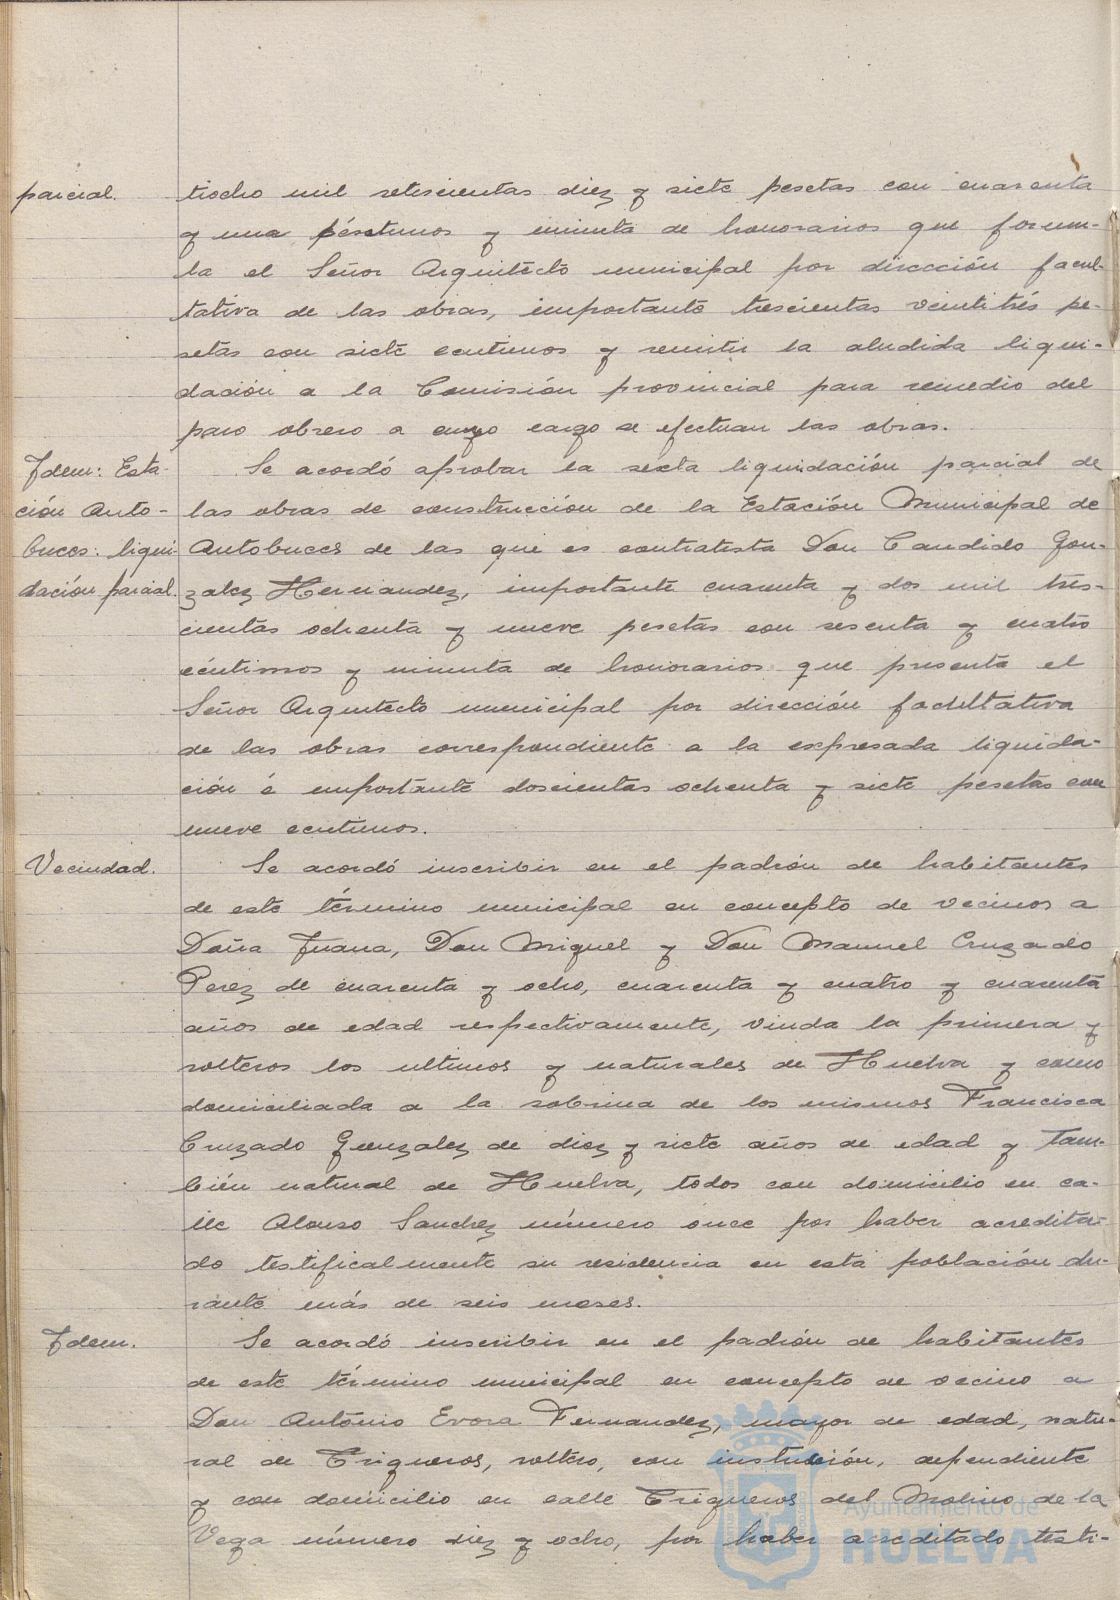 parcial.
tiocho mil setecientas diez y siete pesetas con cuarenta
y una céntimos y minuta de honorarios que formu-
la el Señor Arquitecto municipal por dirección facul-
tativa de las obras, importante trescientas veintitrés pe-
setas con siete centimos y remitir la aludida liqui-
dación a la Comisión provincial para remedio del
paro obrero a cuyo cargo se efectuan las obras.
Idem: Esta-
ción Auto-
buces: liqui-
dación parcial.
Se acordó aprobar la sexta liquidación parcial de
las obras de construcción de la Estación Municipal de
Autobuces de las que es contratista Don Candido Gon-
zalez Hernandez, importante cuarenta y dos mil tres-
cientas ochenta y nueve pesetas con sesenta y cuatro
céntimos y minuta de honorarios que presenta el
Señor Arquitecto municipal por dirección facultativa
de las obras correspondiente a la expresada liquida-
ción é importante doscientas ochenta y siete pesetas con
nueve centimos.
Vecindad.
Se acordó inscribir en el padrón de habitantes
de este término municipal en concepto de vecinos a
Doña Juana, Don Miguel y Don Manuel Cruzado
Perez de cuarenta y ocho, cuarenta y cuatro y cuarenta
años de edad respectivamente, viuda la primera y
solteros los ultimos y naturales de Huelva y como
domiciliada a la sobrina de los mismos Francisca
Cruzado Gonzalez de diez y siete años de edad y tam-
bién natural de Huelva, todos con domicilio en ca-
lle Alonso Sanchez número once por haber acredita-
do testificalmente su residencia en esta población du-
rante más de seis meses.
Idem.
Se acordó inscribir en el padrón de habitantes
de este término municipal en concepto de vecino a
Don António Evora Fernandez, mayor de edad, natu-
ral de Trigueros, soltero, con instrución, dependiente
y con domicilio en calle Trigueros del Molino de la
Vega número diez y ocho, por haber acreditado testi-
Ayuntamiento de
HUELVA